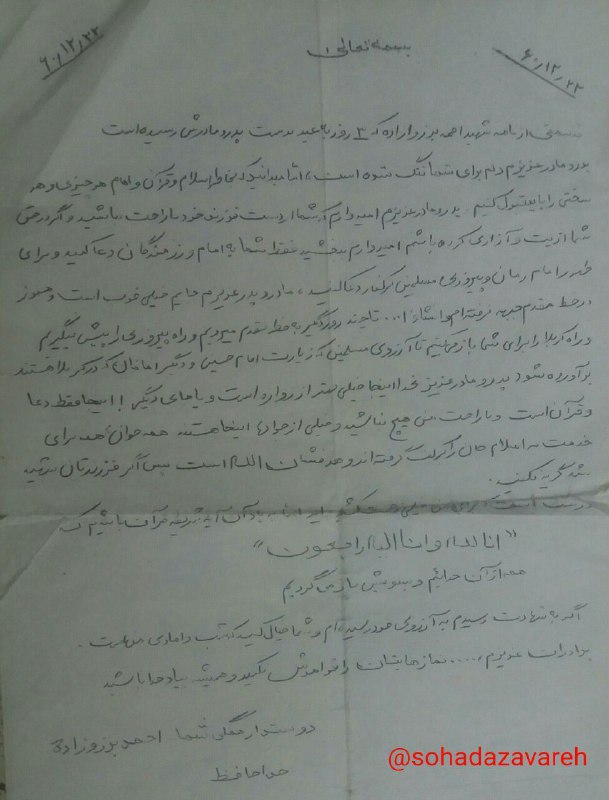 ۶۰/۱۲/۲۲
بسمه تعالی
۶۰/۱۲/۲۲
قسمتی از نامه شهید احمد بزروزاده که ۳ روز به عید بدست پدر و مادرش رسیده است
پدر و مادر عزیزم دلم برای شما تنگ شده است، اما میدانید که بخاطر اسلام و قرآن و امام هر چیزی و هر
سختی را باید قبول کنیم. پدر و مادر عزیزم امیدوارم که شما از دست فرزند خود ناراحت نباشید و اگر در حق
شما اذیت و آزاری کرده باشم امیدوارم ببخشید فقط شما به امام و رزمندگان دعا کنید و برای
ظهور امام زمان و پیروزی مسلمین دعا کنید، مادر و پدر عزیزم حالم خیلی خوب است و هنوز
در خط مقدم جبهه نرفته‌ام و انشاء ا... تا چند روز دیگر به خط مقدم میرویم و راه پیروزی را پیش میگیریم
و راه کربلا را برای شما باز میکنیم تا آرزوی مسلمین که زیارت امام حسین و دیگر امامان که در کربلا هستند
برآورده شود پدر و مادر عزیز بخدا اینجا خیلی بهتر از زواره است و یا جاهای دیگر اینجا فقط دعا
و قرآن است و ناراحت من هیچ نباشید و خیلی از جوانها اینجا هستند همه جوان‌ها برای
خدمت به اسلام جان را کف گرفته‌اند و هدفشان الله است پس اگر فرزندتان شهید
شد گریه نکنید.
درست است که برای من خیلی زحمت کشیدید آیه شریفه قرآن باشیم که
"انا لله و انا الیه راجعون"
همه از آن خدائیم و بسویش باز می گردیم
اگر به شهادت رسیدم به آرزوی خود رسیده‌ام و شما خیال کنید که شب دامادی من است.
برادران عزیزم، .... نمازهایتان را فراموش نکنید و همیشه بیاد خدا باشید
دوستدار همگی شما احمد بزروزاده
خداحافظ
@sohadazavareh